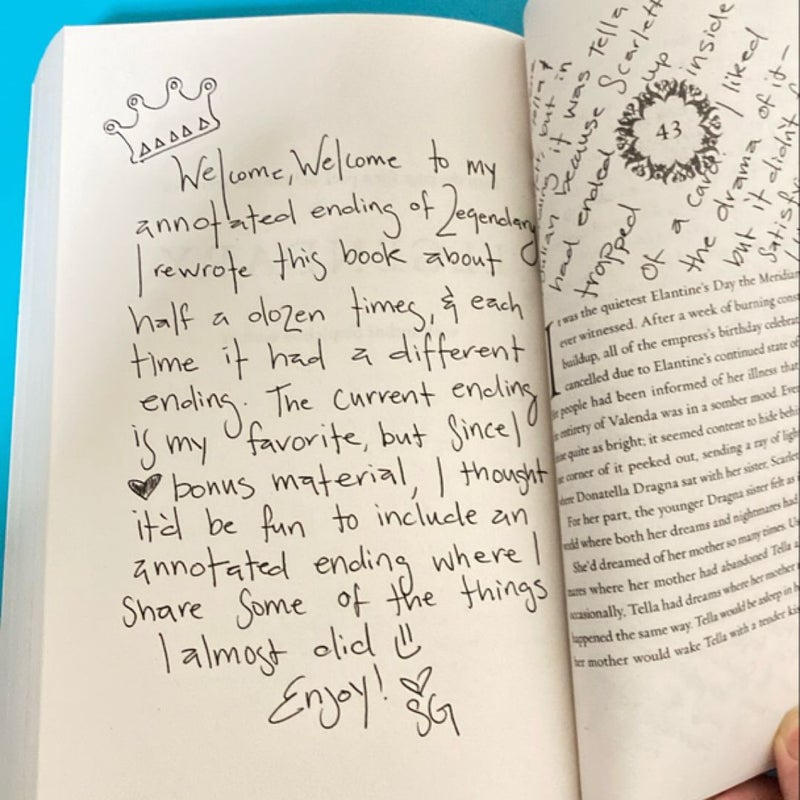 Welcome, Welcome to my
annotated ending of Legendary
I rewrote this book about
half a dozen times, & each
time it had a different
ending. The current ending
is my favorite, but since I
♥ bonus material, I thought
it'd be fun to include an
annotated ending where I
share some of the things
I almost did
Enjoy! ♡
SG
but in
it was Tella
had ended because Scarlett
trapped up inside
of a card. I liked
the drama of it–
but it didn't
43
It was the quietest Elantine's Day the Meridian
ever witnessed. After a week of burning
buildup, all of the empress's birthday
cancelled due to Elantine's continued state of
people had been informed of her illness that
entirety of Valenda was in a somber mood. Even
quite as bright; it seemed content to hide
corner of it peeked out, sending a ray of light
Donatella Dragna sat with her sister, Scarlett
For her part, the younger Dragna sister felt as
where both her dreams and nightmares had
She'd dreamed of her mother so many times.
where her mother had abandoned Tella
occasionally, Tella had dreams where her mother
happened the same way. Tella would be asleep in
her mother would wake Tella with a tender